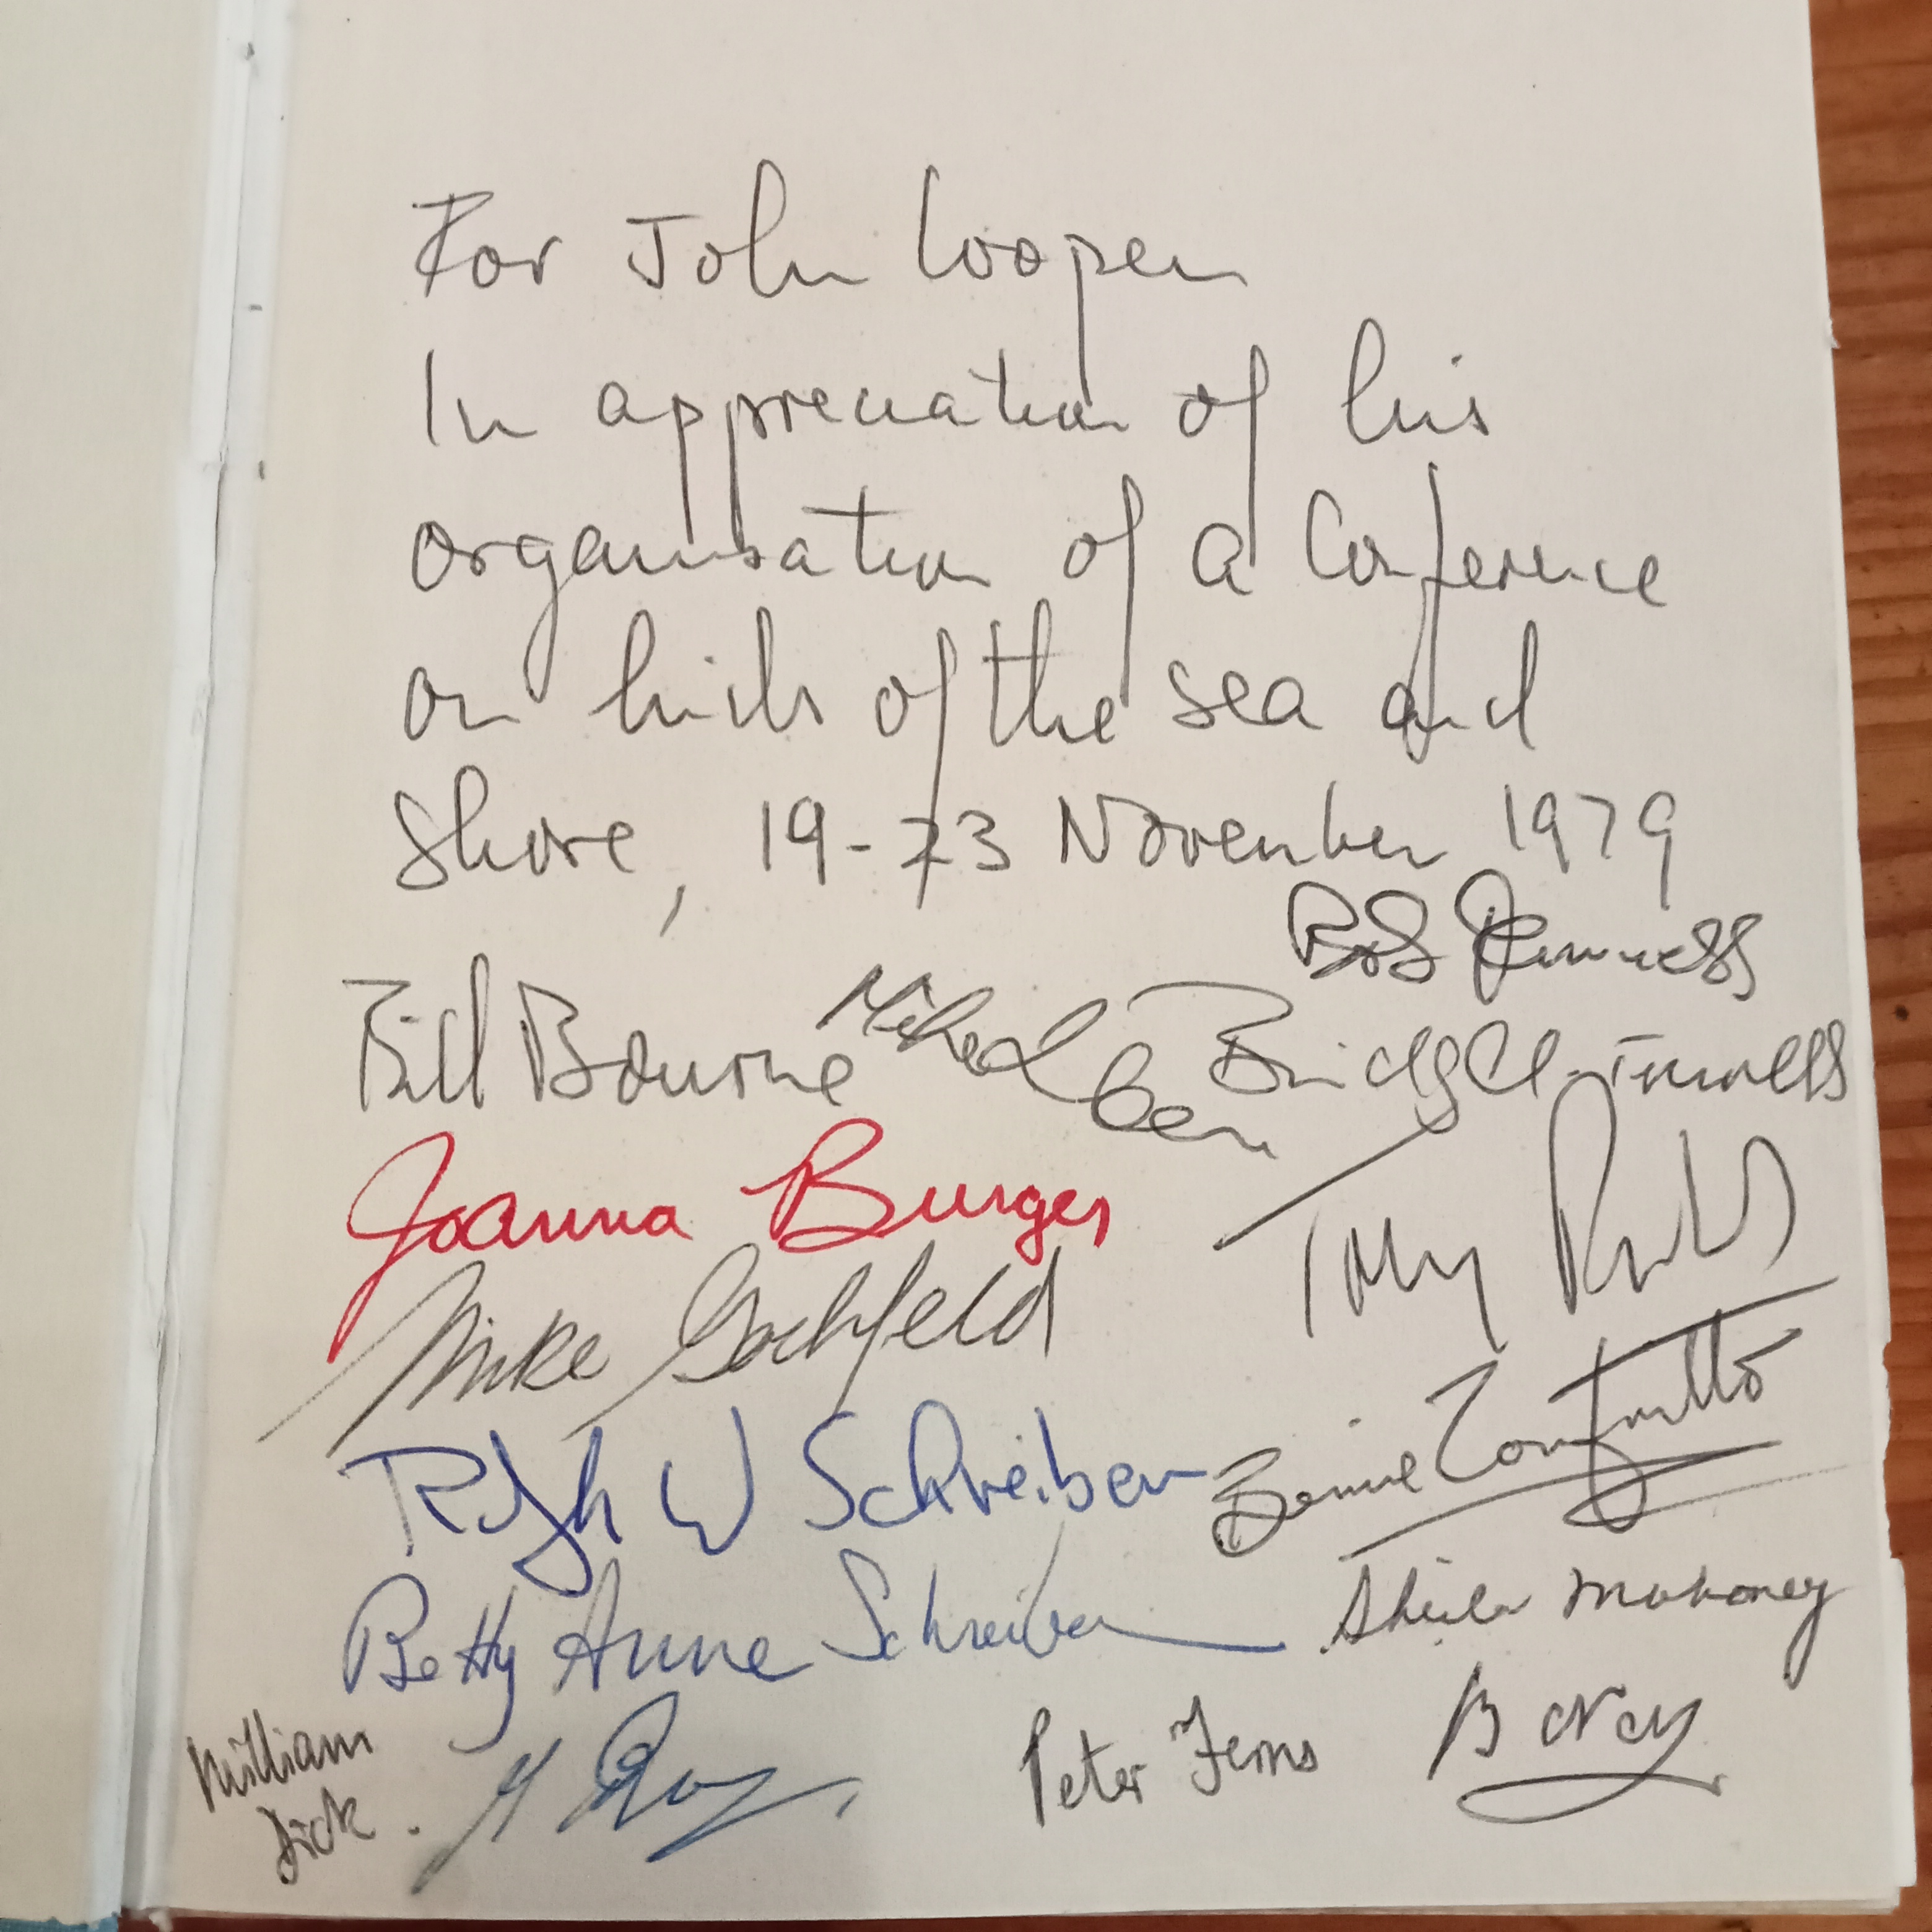 For John Cooper
In appreciation of his
organisation of a Conference
on birds of the sea and
Shore, 19-23 November 1979
Bob Furness
Bill Bourne
Bridget Furness
Joanna Burger
Tony
Mike Gochfeld
Ralph W Schreiber
Bernie Zonfrillo
Betty Anne Schreiber
Sheila Mahoney
William
Dick.
Peter Ferns